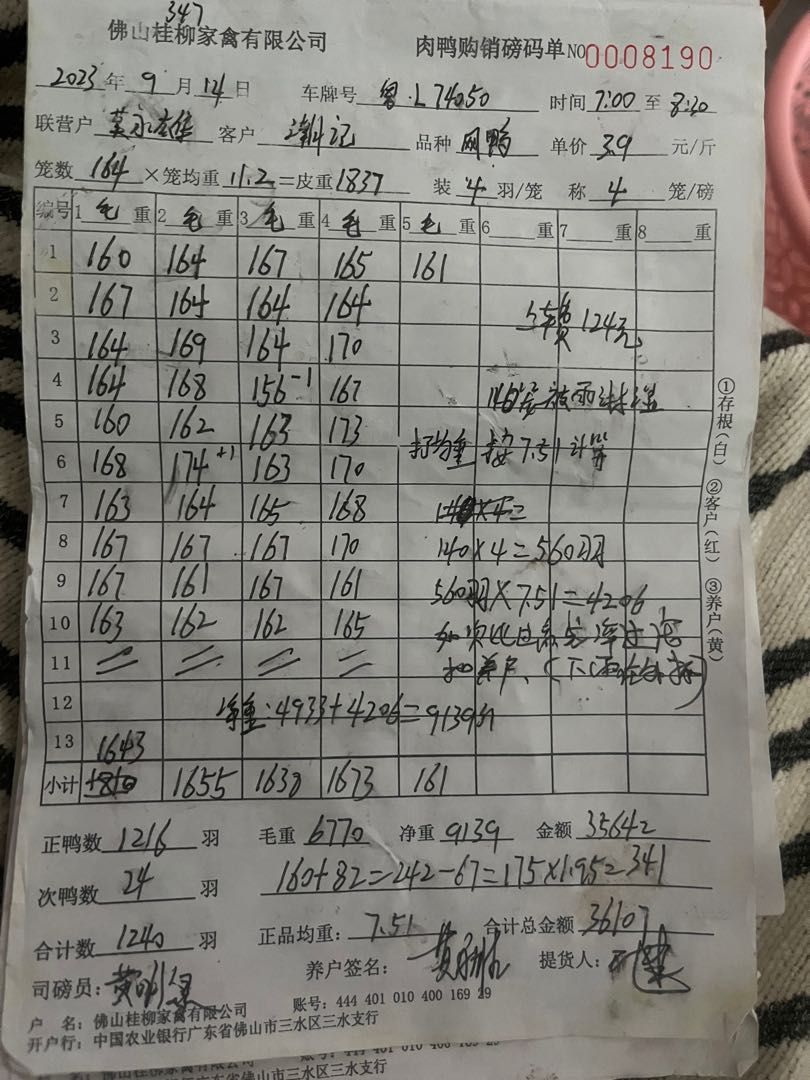 347
佛山桂柳家禽有限公司 肉鸭购销磅码单 NO 0008190
2023年9月14日 车牌号 粤.L74050 时间 7:00 至 8:20
联营户 莫永雄 客户 记 品种 网鸭 单价 3.9 元/斤
笼数 164 × 笼均重 11.2 = 皮重 1837 装 4 羽/笼 称 4 笼/磅
编号 1 毛 重 2 毛 重 3 毛 重 4 毛 重 5 毛 重 6 重 7 重 8 重
1 160 164 167 165 161
2 167 164 164 164
车费 124元
3 164 169 164 170
4 164 168 156-1 167
被雨
5 160 162 163 173
打均重 按7.51计算
6 168 174+1 163 170
7 163 164 165 168
8 167 167 167 170 140×4=560羽
9 167 161 167 161 560羽×7.51=4206
10 163 162 162 165
11 〃 〃 〃 〃
12 净重:4933+4206=9139斤
13 1643
小计 1655 1638 1673 161
正鸭数 1216 羽 毛重 6770 净重 9139 金额 35642
次鸭数 24 羽 160+82=242-67=175×1.95=341
合计数 1240 羽 正品均重: 7.51 合计总金额 36107
司磅员: 养户签名: 提货人:
户 名: 佛山桂柳家禽有限公司 账号: 444 401 010 400 169 29
开户行: 中国农业银行广东省佛山市三水区三水支行
①存根(白) ②客户(红) ③养户(黄)